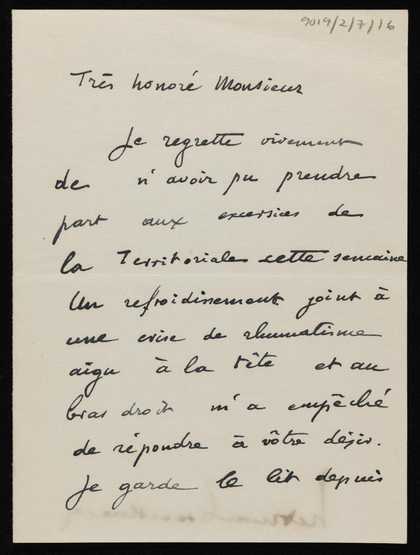 9019/2/7/16
Très honoré Monsieur
Je regrette vivement
de n'avoir pu prendre
part aux excersices de
la Territoriale cette semaine
Un refroidissement joint à
une crise de rhumatisme
aigu à la tête et au
bras droit m'a empêché
de répondre à vôtre désir.
Je garde le lit depuis